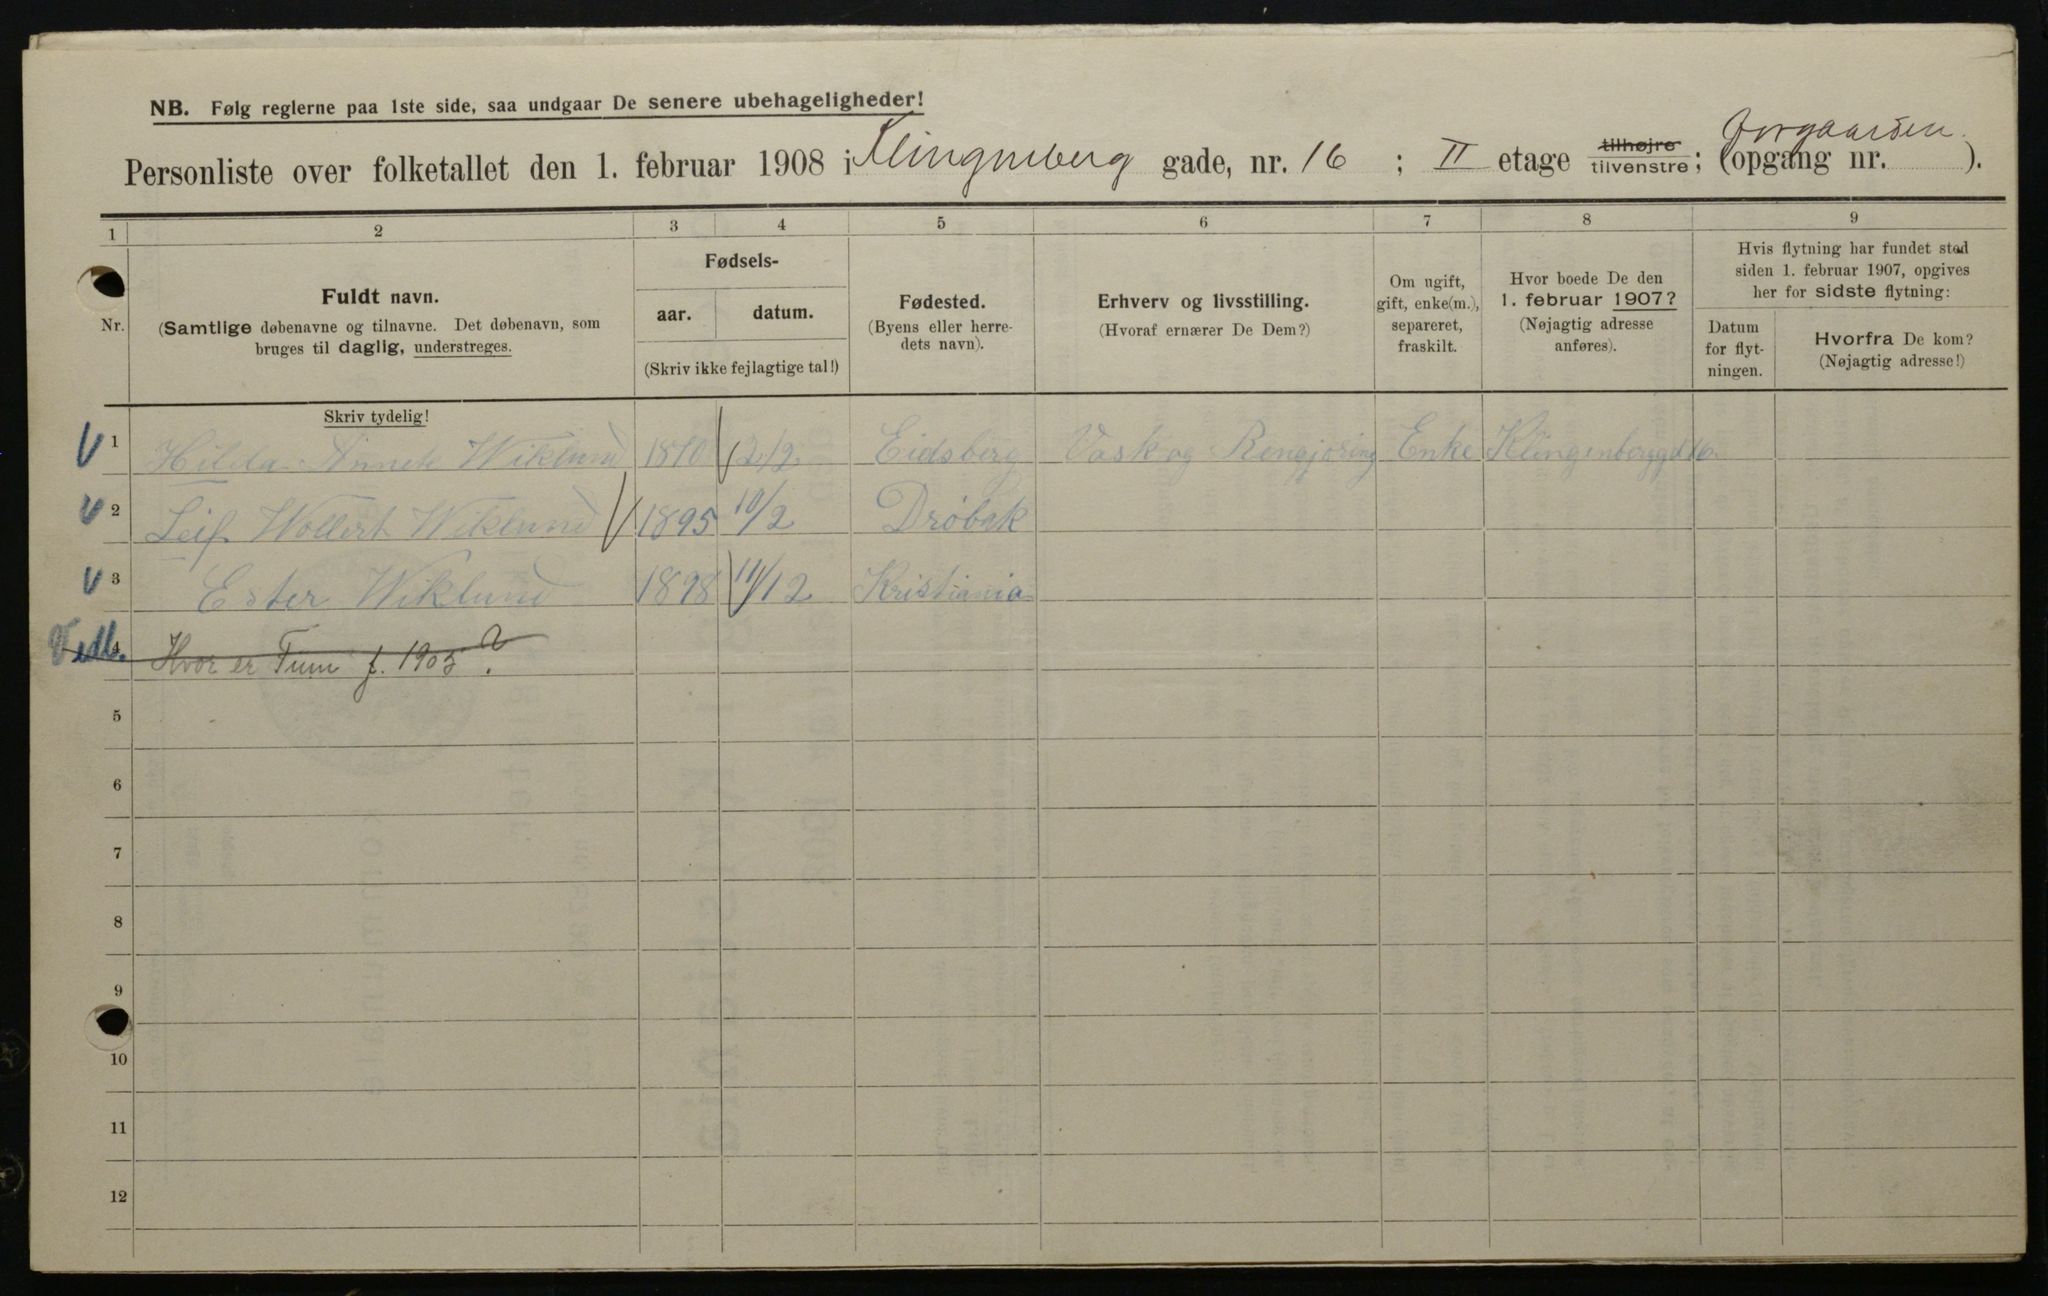 NB. Følg reglerne paa 1ste side, saa undgaar De senere ubehageligheder!
Personliste over folketallet den 1. februar 1908 i Klingenberg gade, nr. 16 ; II etage tilhøjre tilvenstre; (opgang nr. ).
1 2 3 4 5 6 7 8 9
Nr.
Fuldt navn.
(Samtlige døbenavne og tilnavne. Det døbenavn, som
bruges til daglig, understreges.
Skriv tydelig!
Fødsels-
aar. datum.
(Skriv ikke fejlagtige tal!)
Fødested.
(Byens eller herre-
dets navn).
Erhverv og livsstilling.
(Hvoraf ernærer De Dem?)
Om ugift,
gift, enke(m.),
separeret,
fraskilt.
Hvor boede De den
1. februar 1907?
(Nøjagtig adresse
anføres).
Hvis flytning har fundet sted
siden 1. februar 1907, opgives
her for sidste flytning:
Datum
for flyt-
ningen.
Hvorfra De kom?
(Nøjagtig adresse!)
1 Hilda Annete Wiklund 1870 2/12 Eidsberg Vask og Rengjøring Enke Klingenberggd 16
2 Leif Wollert Wiklund 1895 10/2 Drøbak
3 Ester Wiklund 1898 11/12 Kristiania
4 Hvor er f. 1903 ?
5
6
7
8
9
10
11
12